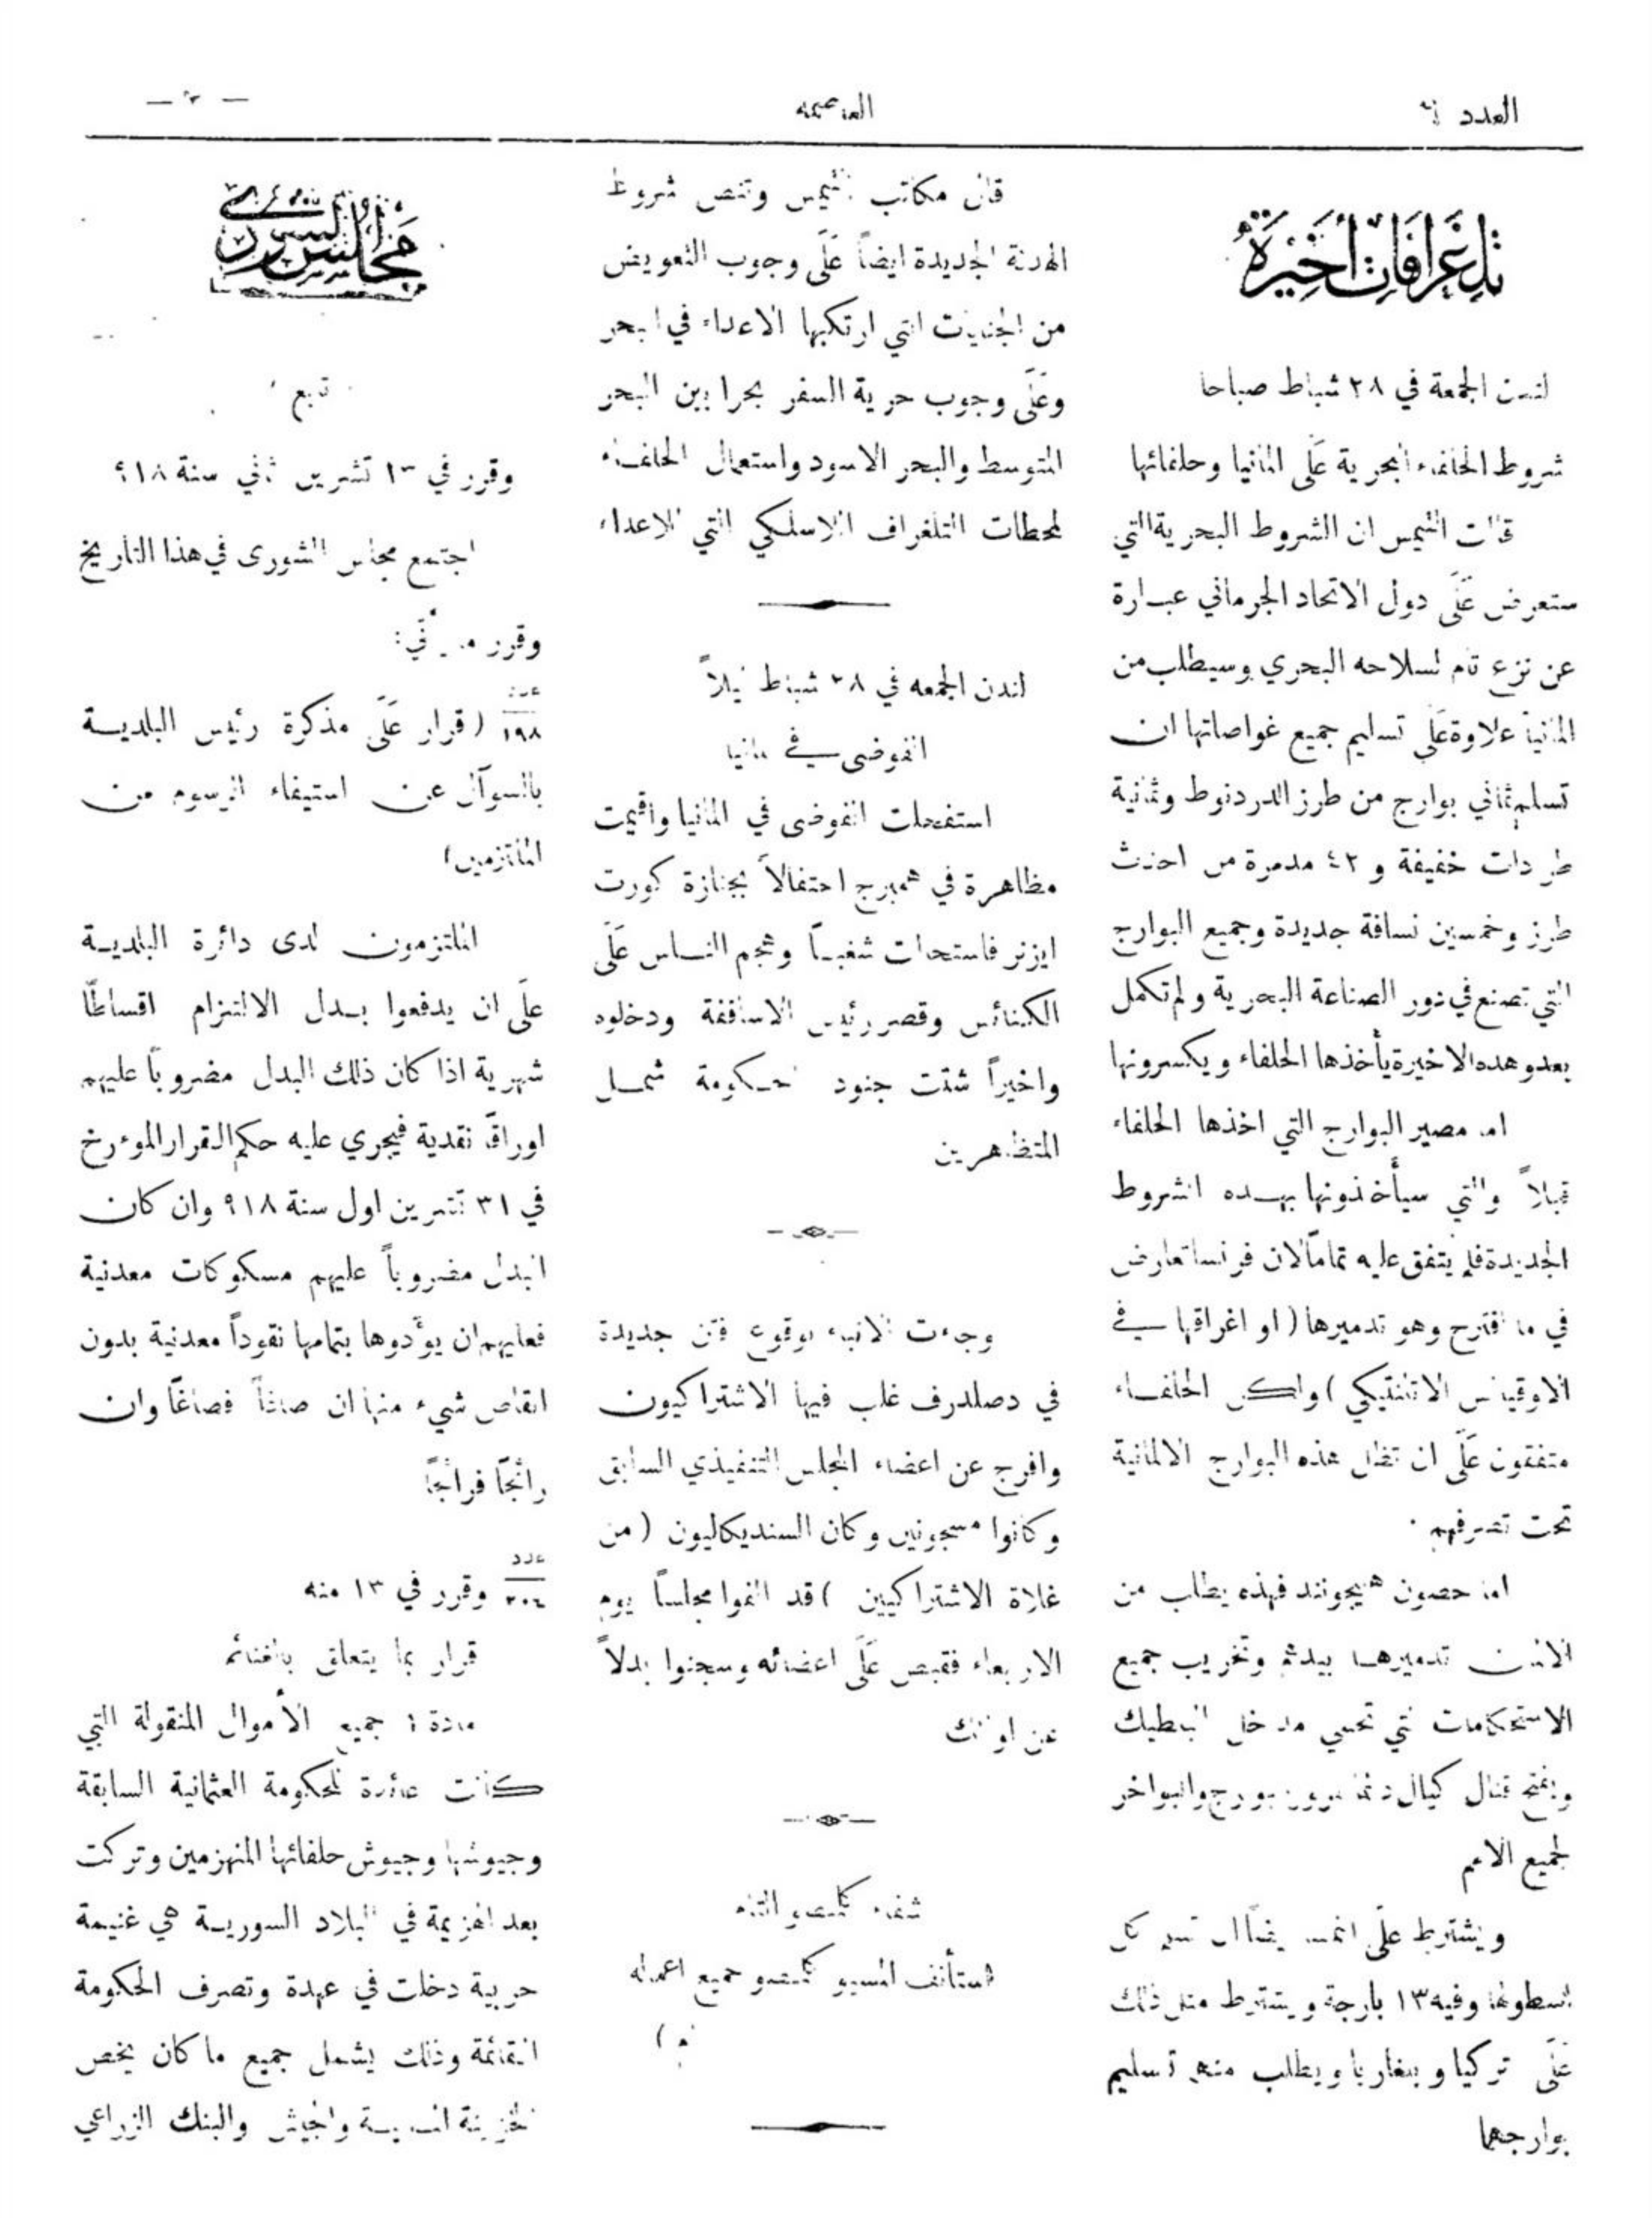 العدد
العاصمة
تلغرافات أخيرة
لندن الجمعة في ٢٨ شباط صباحا
شروط الحلفاء البحرية عَلَى المانيا وحلفائها
قالت التيمس ان الشروط البحرية التي
ستعرض عَلَى دول الاتحاد الجرماني عبارة
عن نزع تام لسلاحه البحري وسيطلب من
المانيا علاوة عَلَى تسليم جميع غواصاتها ان
تسلم ثماني بوارج من طرز الدردنوط وثمانية
طرادات خفيفة و ٤٢ مدمرة من احدث
طرز وخمسين نسافة جديدة وجميع البوارج
التي تصنع في دور الصناعة البحرية ولم تكمل
بعد وهده الاخيرة يأخذها الحلفاء ويكسرونها
اما مصير البوارج التي اخذها الحلفاء
قبلاً والتي سيأخذونها بهده الشروط
الجديدة فلم يتفق عليه تماماً لان فرنسا تعارض
في ما اقترح وهو تدميرها ( او اغراقها في
الاوقيانس الاتلنتيكي ) ولكن الحلفاء
متفقون عَلَى ان تظل هذه البوارج الالمانية
تحت تصرفهم .
اما حصون هيجولند فهذه يطلب من
الالمان تدميرها بيدهم وتخريب جميع
الاستحكامات التي تحمي مداخل البلطيك
وبفتح قنال كيال والبواخر
لجميع الامم
ويشترط عَلَى كل
اسطولها وفيه ١٣ بارجة ويشترط مثل ذلك
عَلَى تركيا وبلغاريا ويطلب منهم تسليم
بوارجهما
قال مكاتب التيمس وتنص شروط
الهدنة الجديدة ايضاً عَلَى وجوب التعويض
من الجنايات التي ارتكبها الاعداء في البحر
وعَلَى وجوب حرية السفر بحرا بين البحر
المتوسط والبحر الاسود واستعمال الحلفاء
لمحطات التلغراف اللاسلكي التي للاعداء
لندن الجمعه في ٢٨ شباط ليلاً
الفوضى في المانيا
استفحلت الفوضى في المانيا واقيمت
مظاهرة في همبرج احتفالاً بجنازة كورت
ايزنر فاستحالت شغباً وهجم الناس عَلَى
الكنائس وقصر رئيس الاساقفة ودخلوه
واخيراً شتت جنود الحكومة شمل
المتظاهرين
وجاءت الانباء بوقوع فتن جديدة
في دصلدرف غلب فيها الاشتراكيون
وافرج عن اعضاء المجلس التنفيذي السابق
وكانوا مسجونين وكان السنديكاليون ( من
غلاة الاشتراكيين ) قد الفوا مجلساً يوم
الاربعاء فقبض عَلَى اعضائه وسجنوا بدلاً
عن اولئك
شفاء كلمنصو التام
استأنف المسيو كلمنصو جميع اعماله
مجلس الشورى
تابع
وقرر في تشرين ثاني سنة
اجتمع مجلس الشورى في هذا التاريخ
وقرر ما يأتي:
عدد
١٩٨ ( قرار عَلَى مذكرة رئيس البلدية
بالسوآل عن استيفاء الرسوم من
الملتزمين )
الملتزمون لدى دائرة البلدية
علَى ان يدفعوا بدل الالتزام اقساطاً
شهرية اذا كان ذلك البدل مضروباً عليهم
اوراق نقدية فيجري عليه حكم القرار الموءرخ
في ٣١ تشرين اول سنة ٩١٨ وان كان
البدل مضروباً عليهم مسكوكات معدنية
فعليهم ان يوءدوها بتمامها نقوداً معدنية بدون
انقاص شيء منها ان صاغاً فصاغاً وان
رائجاً فرائجاً
عدد
٢٠٤ وقرر في ١٣ منه
قرار بما يتعلق بالغنائم
مادة ١ جميع الأموال المنقولة التي
كانت عائدة للحكومة العثمانية السابقة
وجيوشها وجيوش حلفائها المنهزمين وتركت
بعد الهزيمة في البلاد السورية هي غنيمة
حربية دخلت في عهدة وتصرف الحكومة
القائمة وذلك يشمل جميع ما كان يخص
والجيش والبنك الزراعي